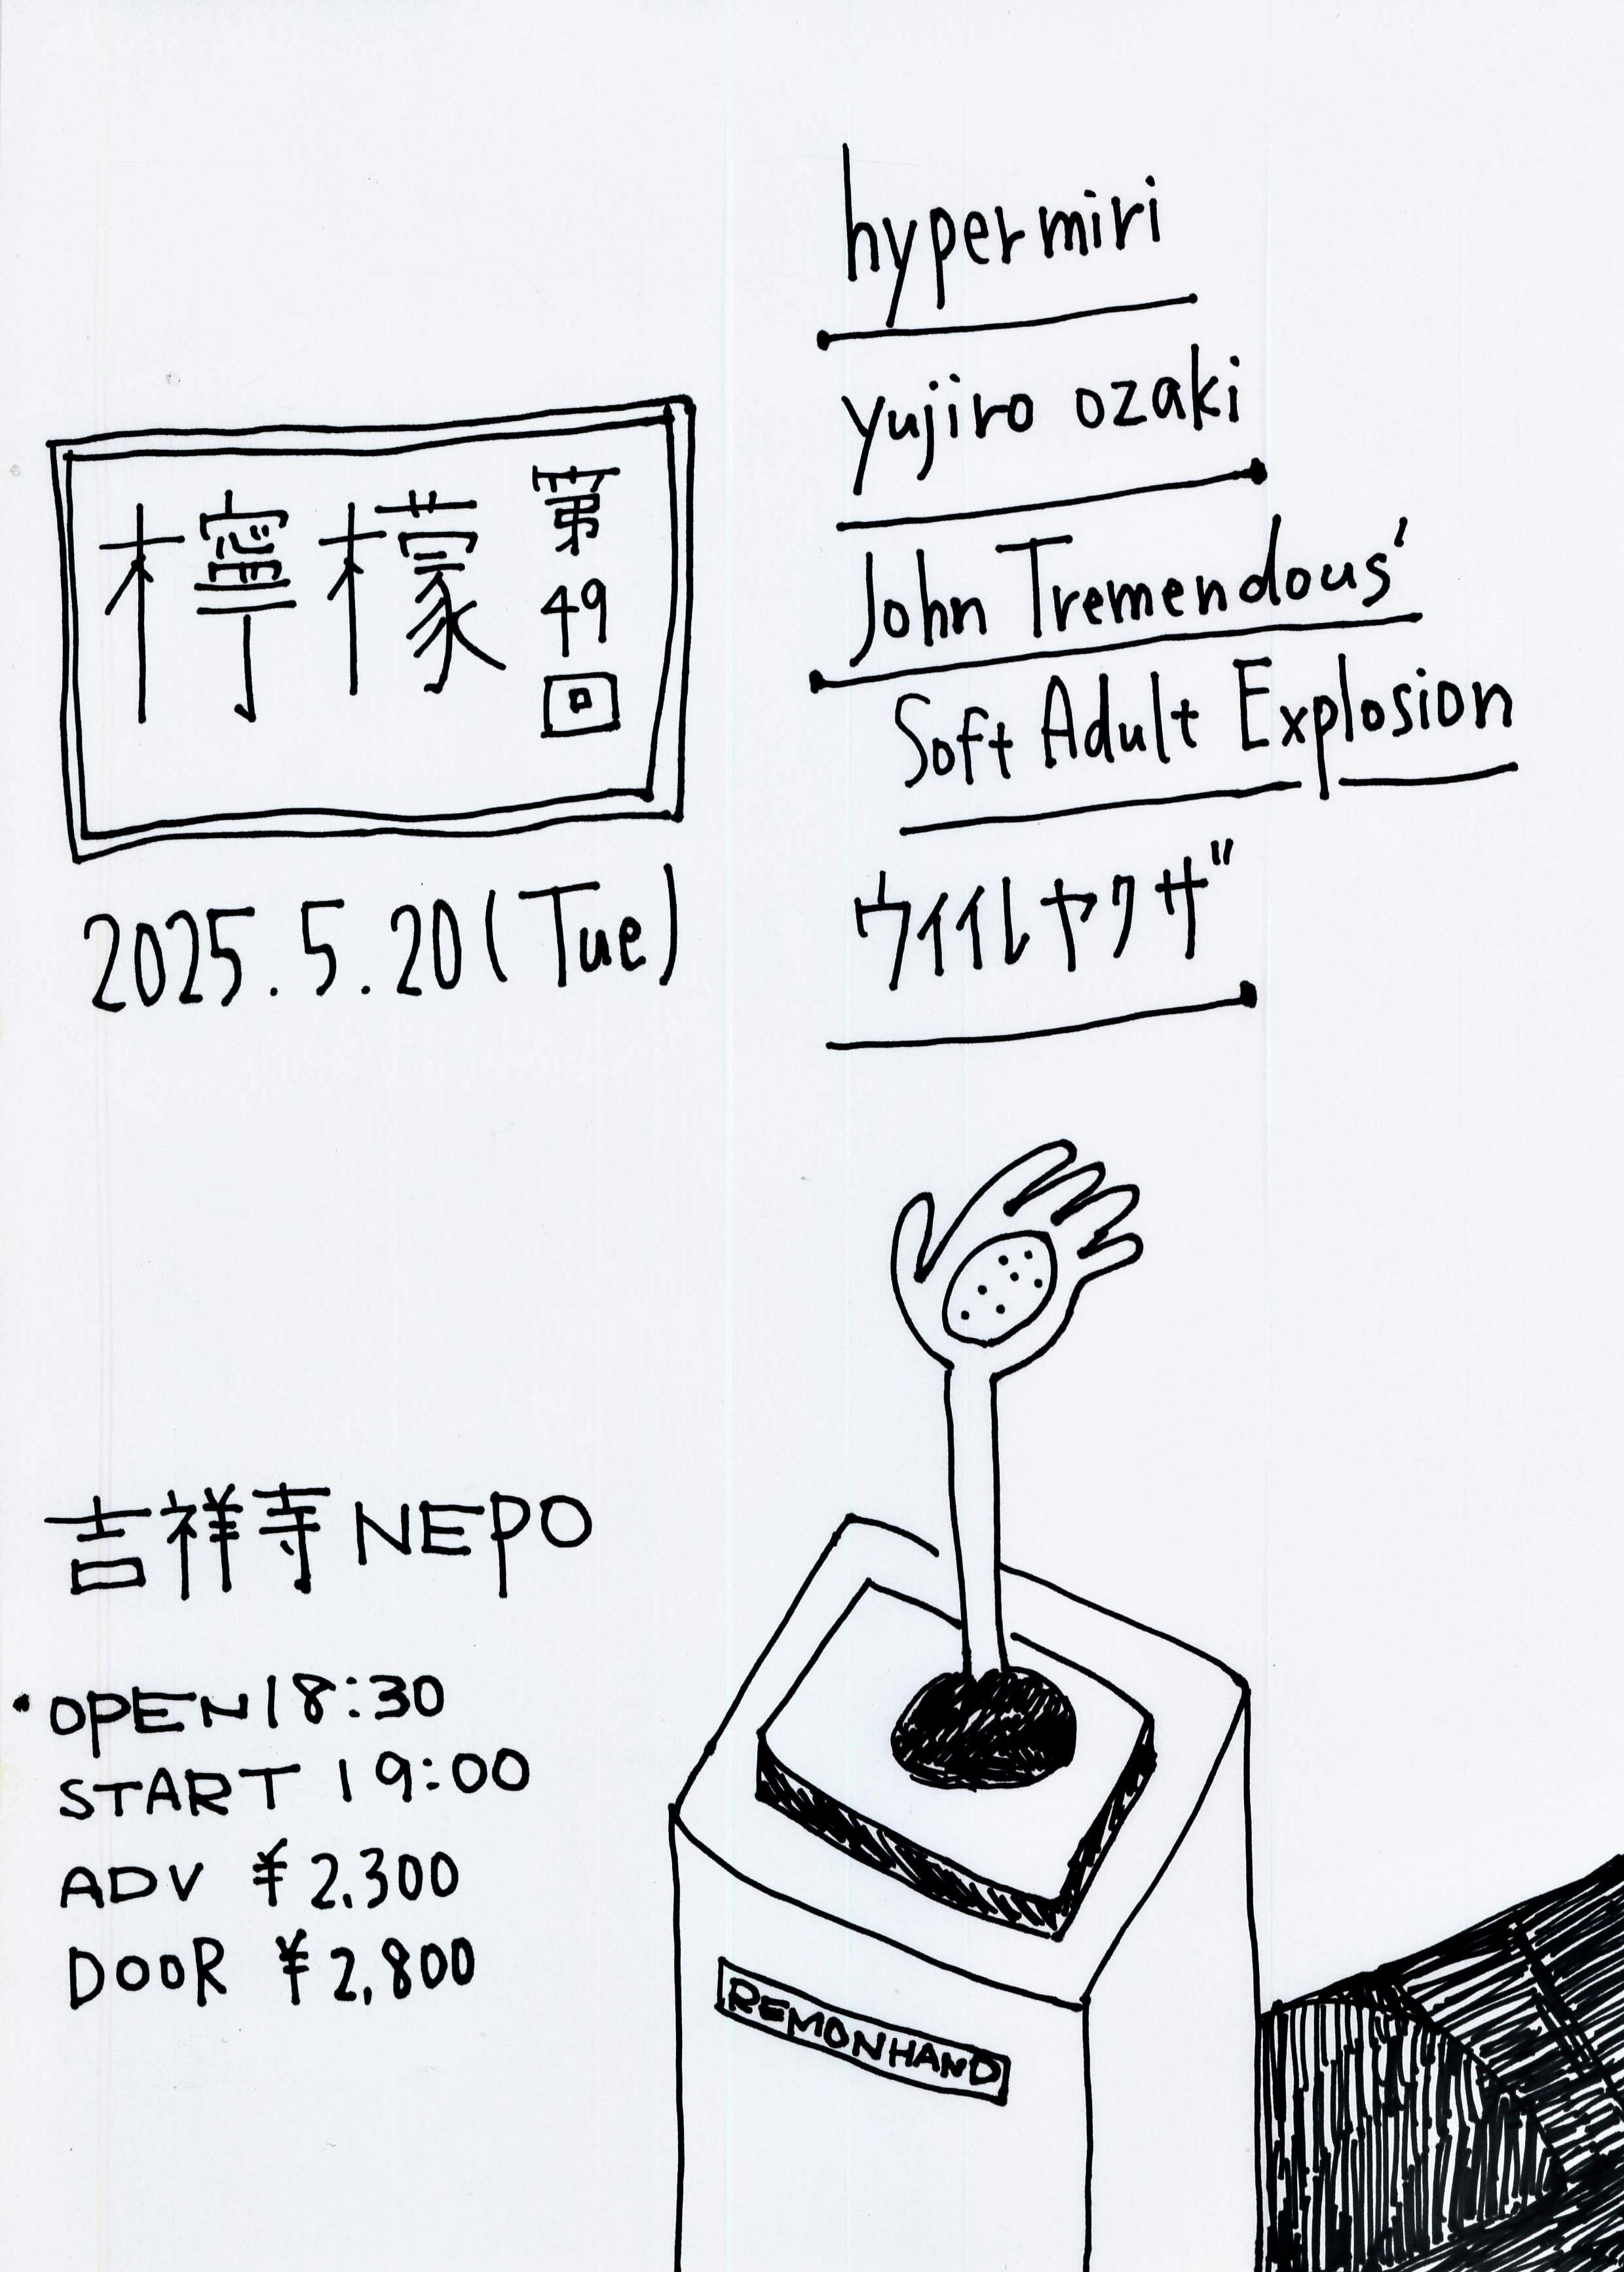 hypermiri
yujiro ozaki
John Tremendous'
Soft Adult Explosion
ウイイレヤクザ
檸檬
第
49
回
2025.5.20(Tue)
吉祥寺NEPO
OPEN 18:30
START 19:00
ADV ¥2,300
DOOR ¥2,800
REMONHAND